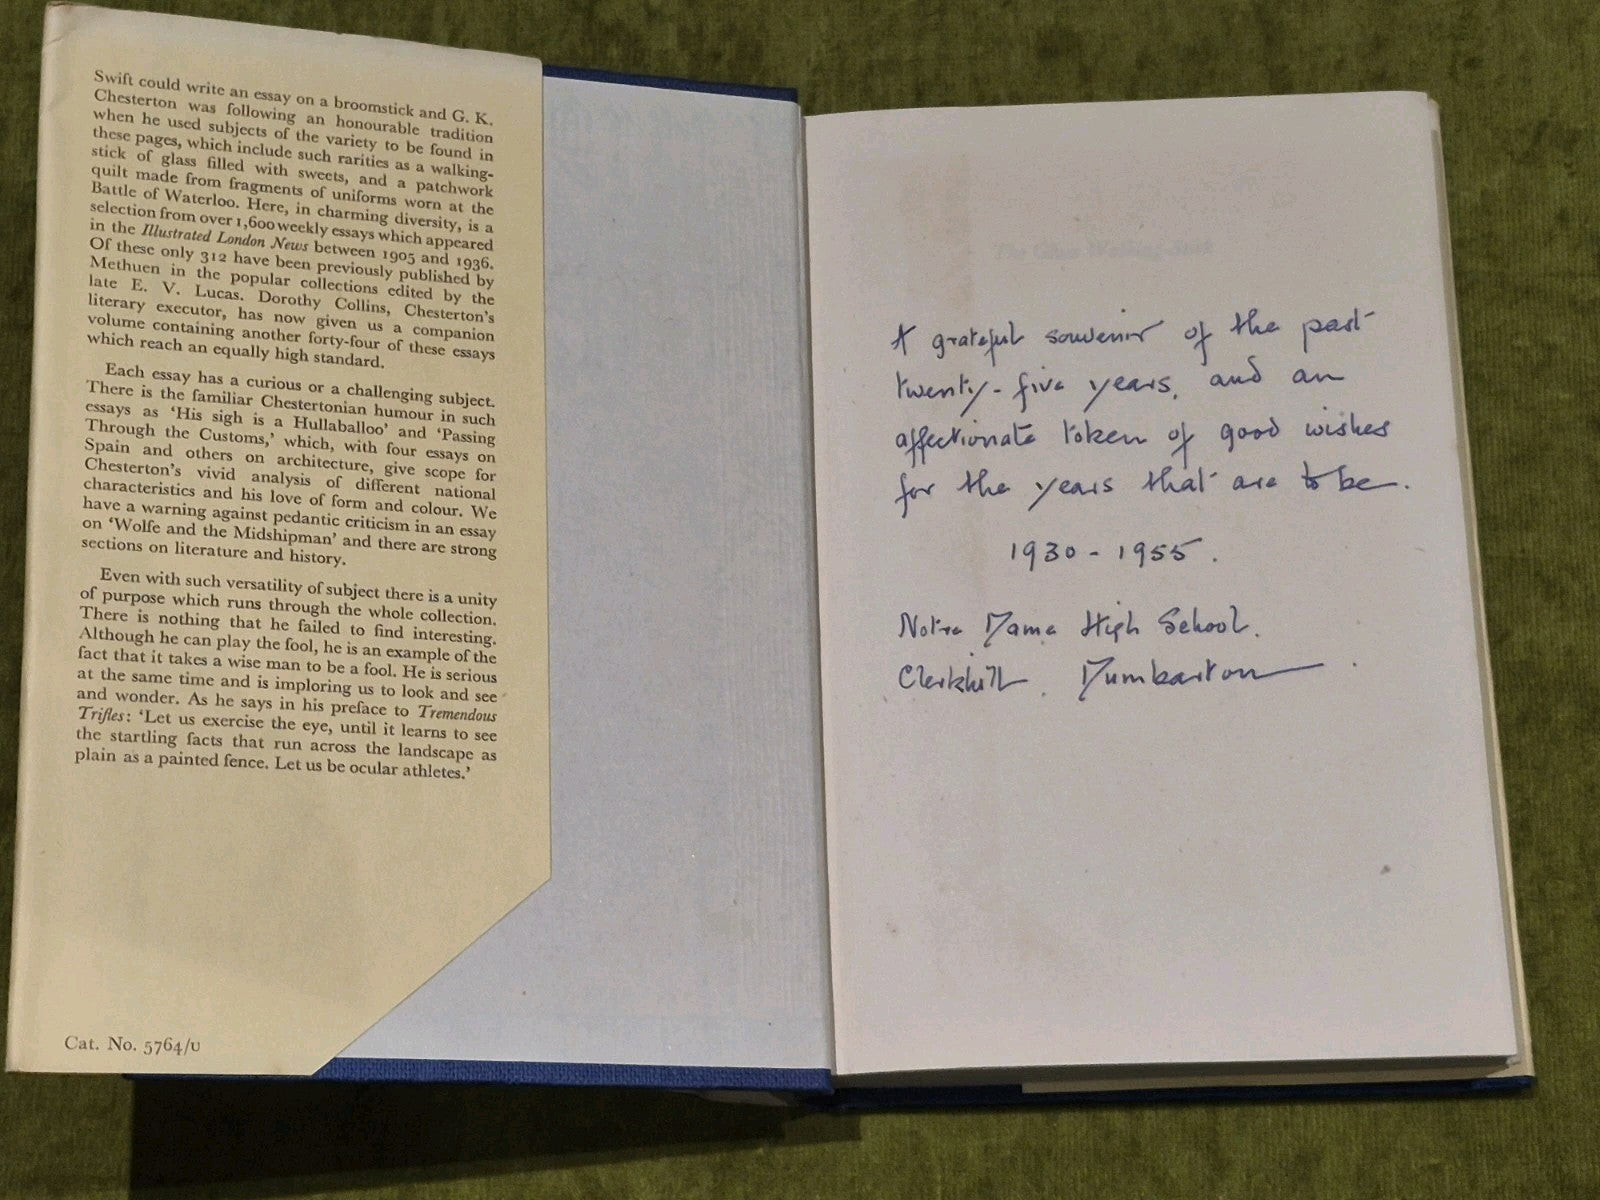 Swift could write an essay on a broomstick and G. K.
Chesterton was following an honourable tradition
when he used subjects of the variety to be found in
these pages, which include such rarities as a walking-
stick of glass filled with sweets, and a patchwork
quilt made from fragments of uniforms worn at the
Battle of Waterloo. Here, in charming diversity, is a
selection from over 1,600 weekly essays which appeared
in the Illustrated London News between 1905 and 1936.
Of these only 312 have been previously published by
Methuen in the popular collections edited by the
late E. V. Lucas. Dorothy Collins, Chesterton's
literary executor, has now given us a companion
volume containing another forty-four of these essays
which reach an equally high standard.
Each essay has a curious or a challenging subject.
There is the familiar Chestertonian humour in such
essays as 'His sigh is a Hullaballoo' and 'Passing
Through the Customs,' which, with four essays on
Spain and others on architecture, give scope for
Chesterton's vivid analysis of different national
characteristics and his love of form and colour. We
have a warning against pedantic criticism in an essay
on 'Wolfe and the Midshipman' and there are strong
sections on literature and history.
Even with such versatility of subject there is a unity
of purpose which runs through the whole collection.
There is nothing that he failed to find interesting.
Although he can play the fool, he is an example of the
fact that it takes a wise man to be a fool. He is serious
at the same time and is imploring us to look and see
and wonder. As he says in his preface to Tremendous
Trifles: 'Let us exercise the eye, until it learns to see
the startling facts that run across the landscape as
plain as a painted fence. Let us be ocular athletes.'
Cat. No. 5764/U
A grateful souvenir of the past
twenty-five years, and an
affectionate token of good wishes
for the years that are to be.
1930 - 1955.
Notre Dame High School.
Clerkhill. Dumbarton.